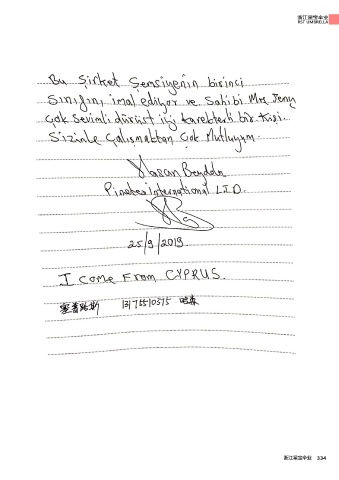 浙江星宝伞业
RST UMBRELLA
Bu Şirket Şemsiyenin birinci
Sınıfını imal ediyor ve Sahibi Mrs Jeny
çok Sevimli dürüst iyi karekterli bir kişi.
Sizinle Çalışmaktan Çok Mutluyum.
Hasan
International LTD.
25/9/2019
I come From CYPRUS.
塞普路斯 13175510575
浙江星宝伞业 334